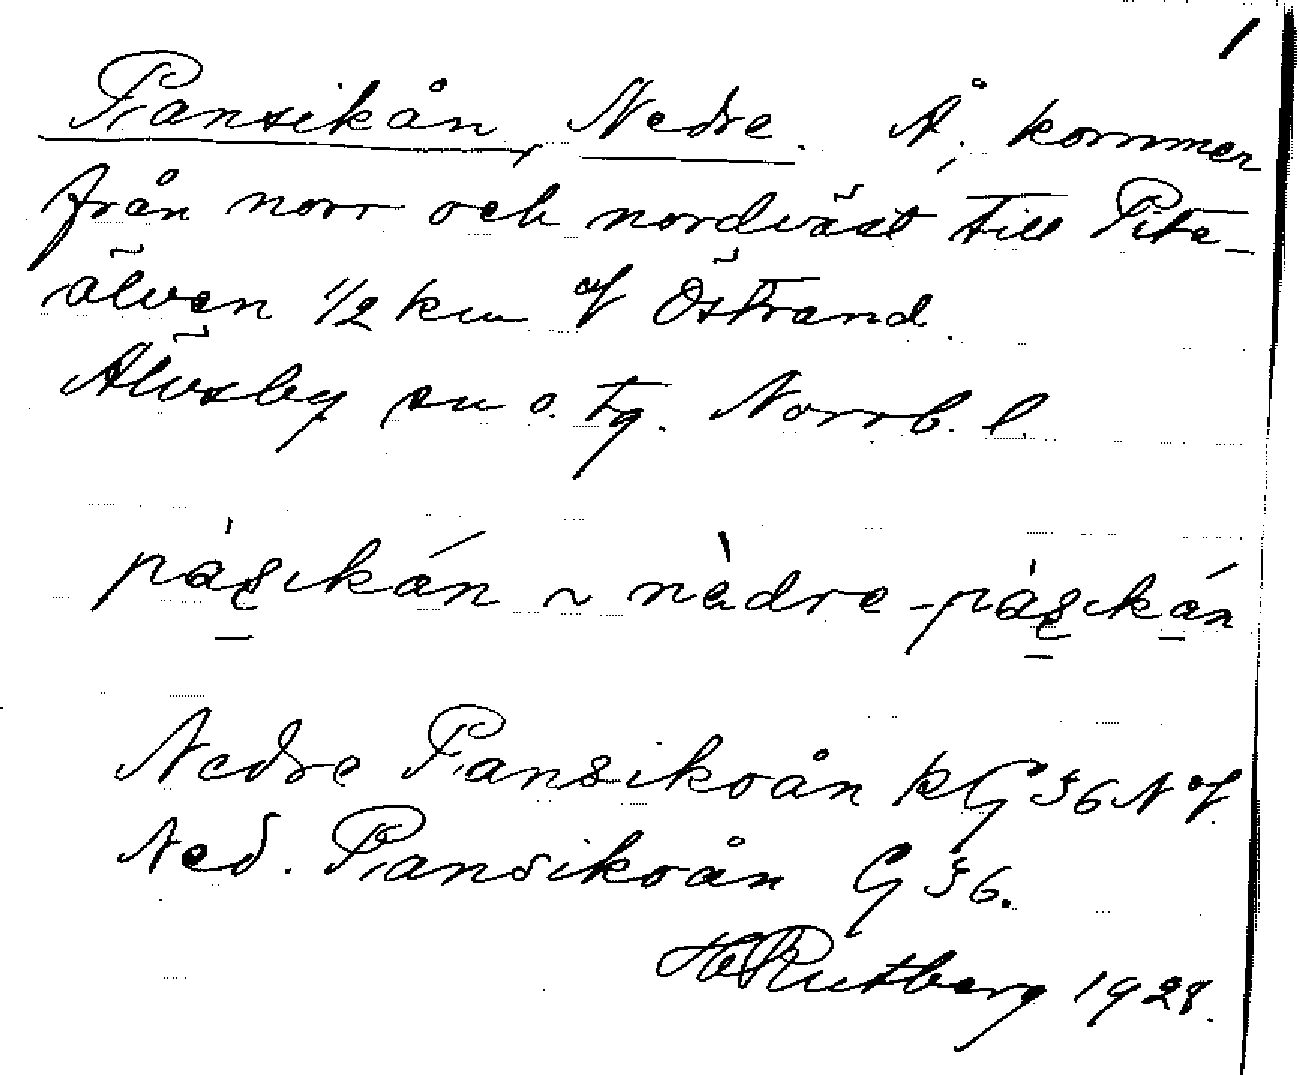 /
Pansikån, Nedre. Å, kommer
från norr och nordväst till Pite-
älven 1/2 km af Östrand.
Älvsby sn o. tg. Norrb. l.
påsikån ~ nèdre-påsikån
Nedre Pansikoån kG 36 N af
Ned. Pansikoån G 36.
HRutberg 1928.